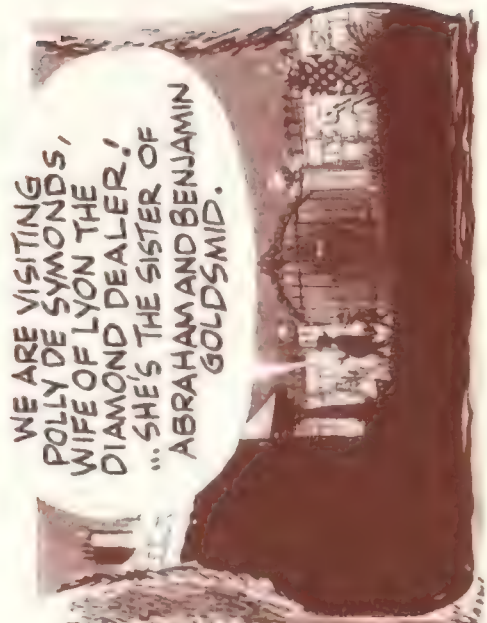 WE ARE VISITING
POLLY DE SYMONDS,
WIFE OF LYON THE
DIAMOND DEALER!
... SHE'S THE SISTER OF
ABRAHAM AND BENJAMIN
GOLDSMID.